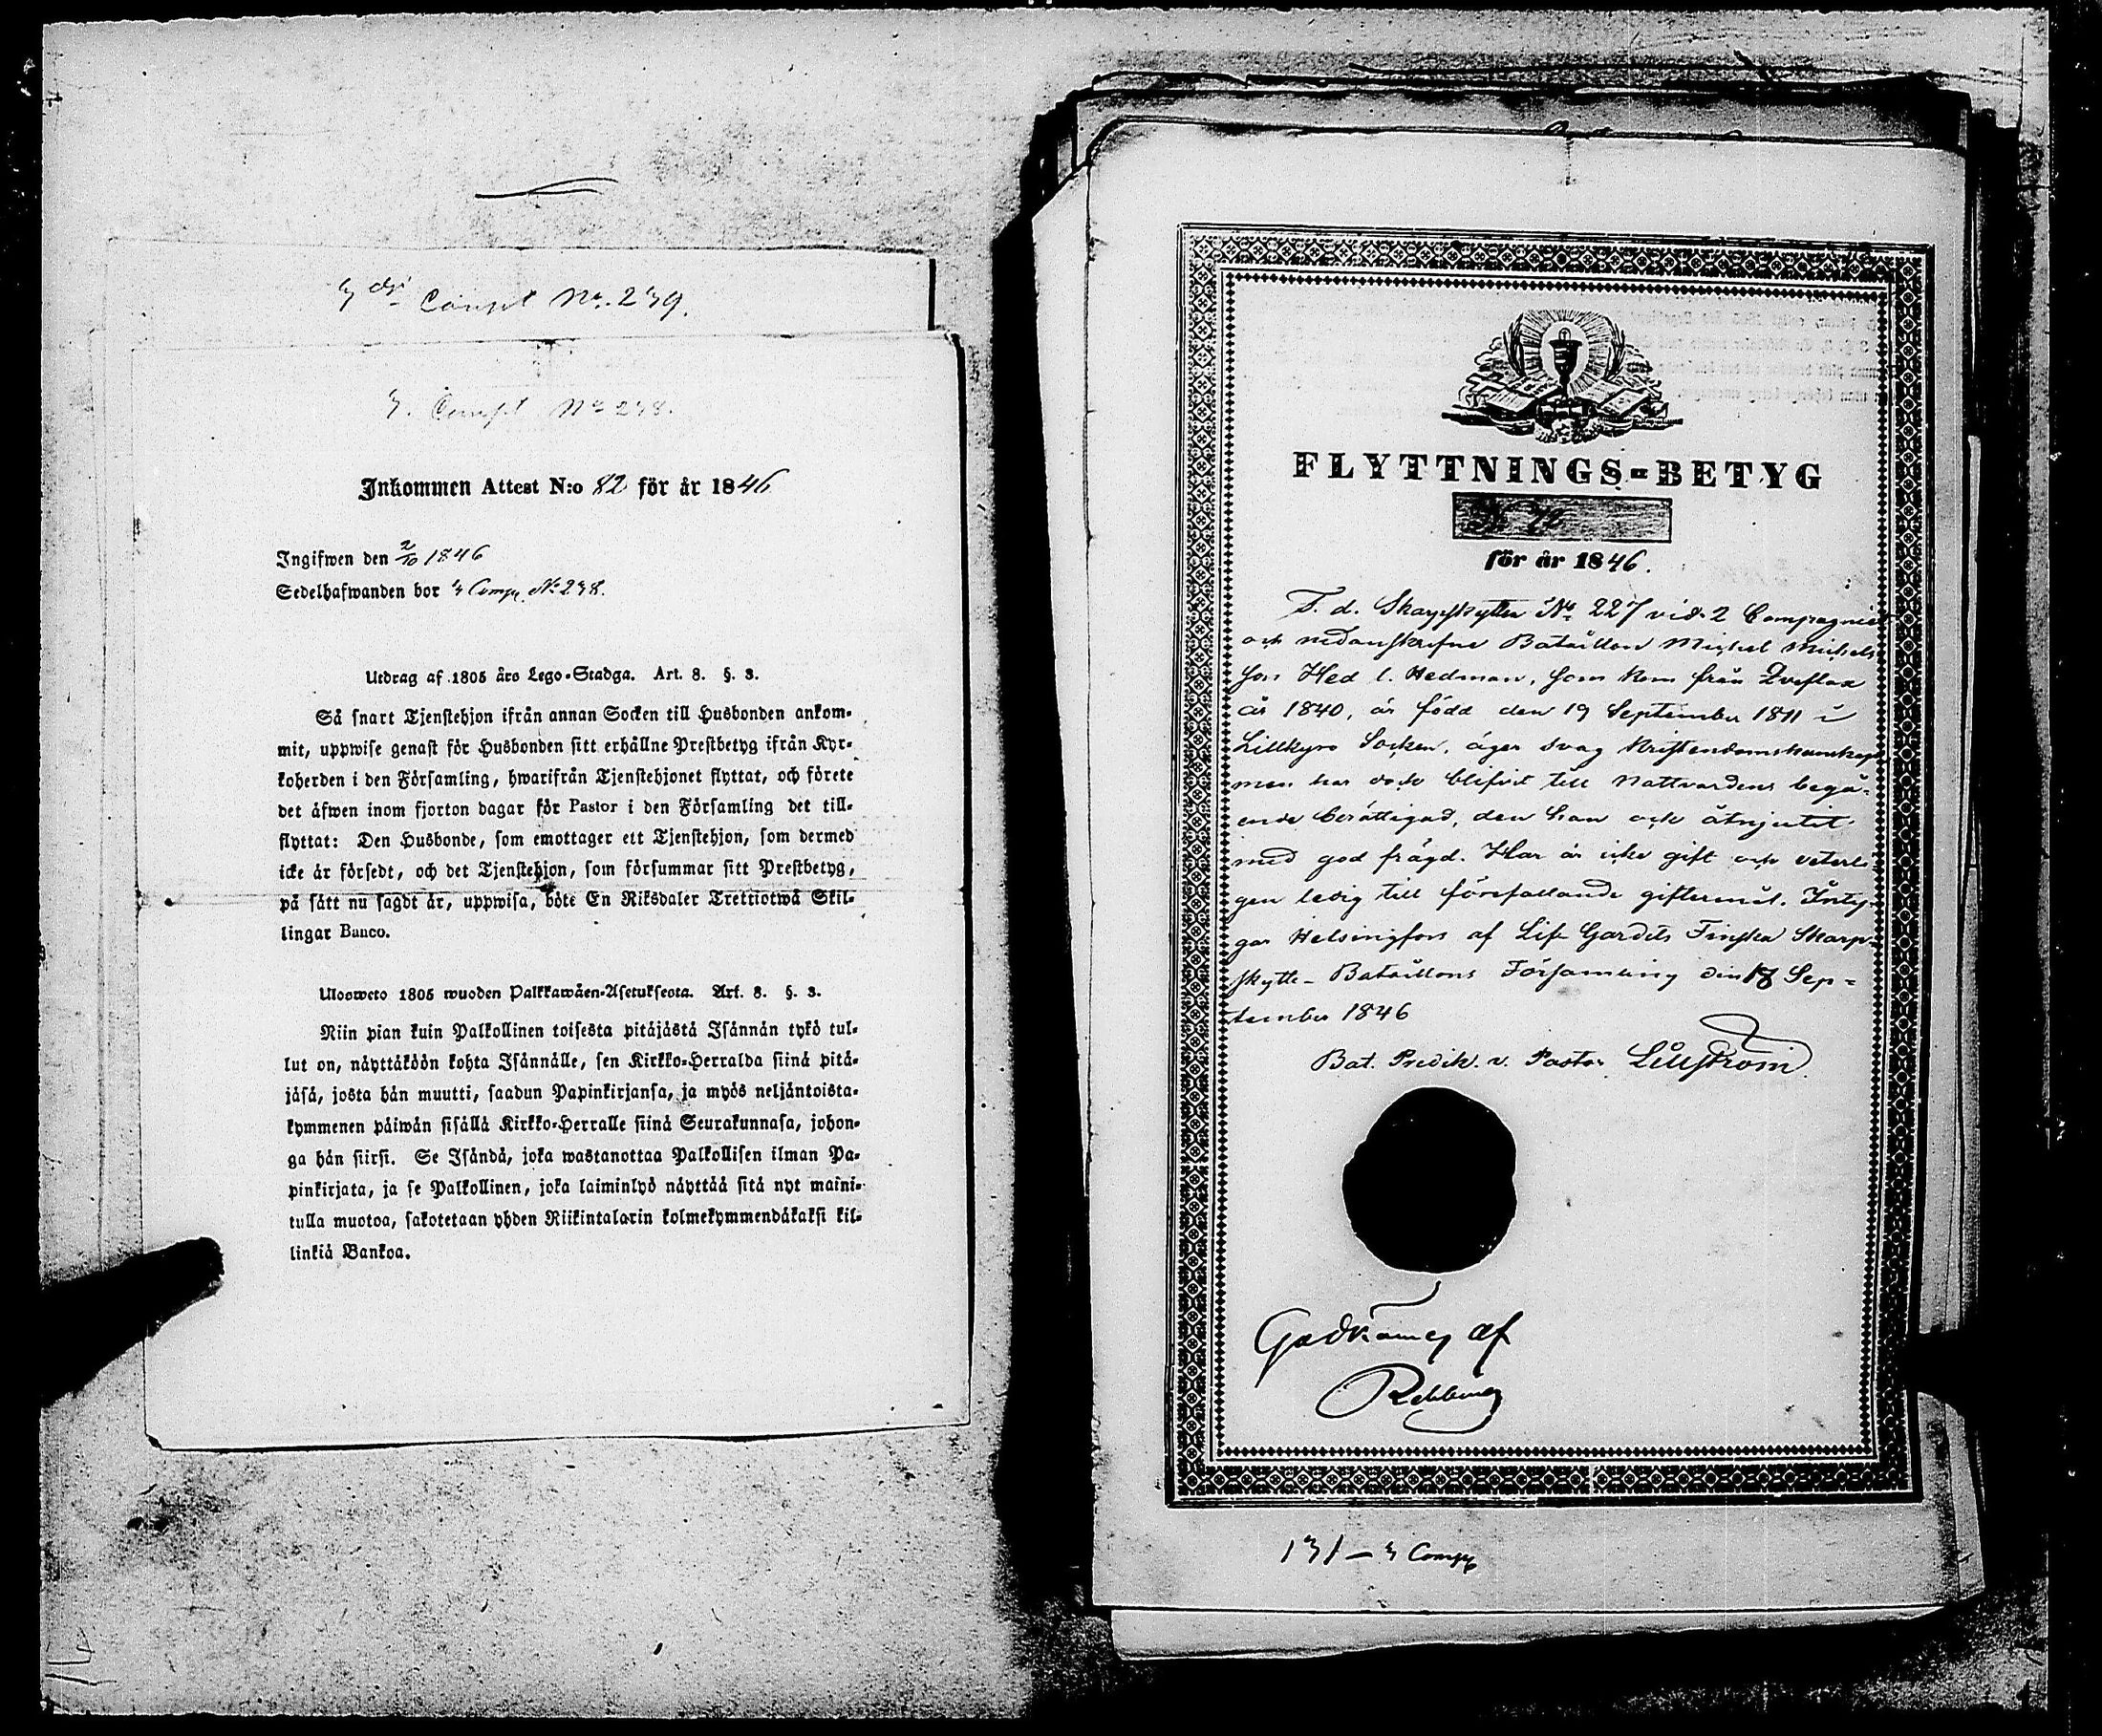 Compt No. 239.
Compt No 238.
Inkommen Attest N:o 82 för år 1846
Ingifwen den 2/10 1846
Sedelhafwanden bor 3 Comp. No 238.
Utdrag af 1805 års Lego-Stadga. Art. 8. §. 3.
Så snart Tjenstehjon ifrån annan Socken till Husbonden ankom-
mit, uppwise genast för Husbonden sitt erhållne Prestbetyg ifrån Kyr-
koherden i den Församling, hwarifrån Tjenstehjonet flyttat, och förete
det äfwen inom fjorton dagar för Pastor i den Församling det till-
flyttat: Den Husbonde, som emottager ett Tjenstehjon, som dermed
icke är försedt, och det Tjenstehjon, som försummar sitt Prestbetyg,
på sätt nu sagdt är, uppwisa, böte En Riksdaler Trettiotwå Skil-
lingar Banco.
Ulosweto 1805 wuoden Palkkawäen-Asetuksesta. Art. 8. §. 3.
Niin pian kuin Palkollinen toisesta pitäjästä Isännän tykö tul-
lut on, näyttäköön kohta Isännälle, sen Kirkko-Herralda siinä pitä-
jäsä, josta hän muutti, saadun Papinkirjansa, ja myös neljäntoista-
kymmenen päiwän sisällä Kirkko-Herralle siinä Seurakunnasa, johon-
ga hän siirsi. Se Isändä, joka wastanottaa Palkollisen ilman Pa-
pinkirjata, ja se Palkollinen, joka laiminlyö näyttää sitä nyt maini-
tulla muotoa, sakotetaan yhden Riikintalarin kolmekymmendäkaksi kil-
linkiä Bankoa.
FLYTTNINGS-BETYG
N 72
för år 1846.
F. d. Skarpskytten No 227 vid 2 Compagniet
och nedanskrefne Bataillon Michel Michels
son Hed l. Hedman, som kom från Qveflax
år 1840, är född den 19 September 1811 i
Lillkyro Socken, äger svag Kristendomskunskap
men har dock blifvit till Nattvardens begå-
ende berättigad, den han ock åtnjutit
med god frägd. Har är icke gift och veterli
gen ledig till förefallande giftermål. Inty-
gar Helsingfors af Lif Gardets Finska Skarp-
skytte-Bataillons Församling den 18 Sep-
tember 1846
Bat. Predik. v. Pastor Lillström
Godkännes af
Rehbinder
131 - 3 Comp